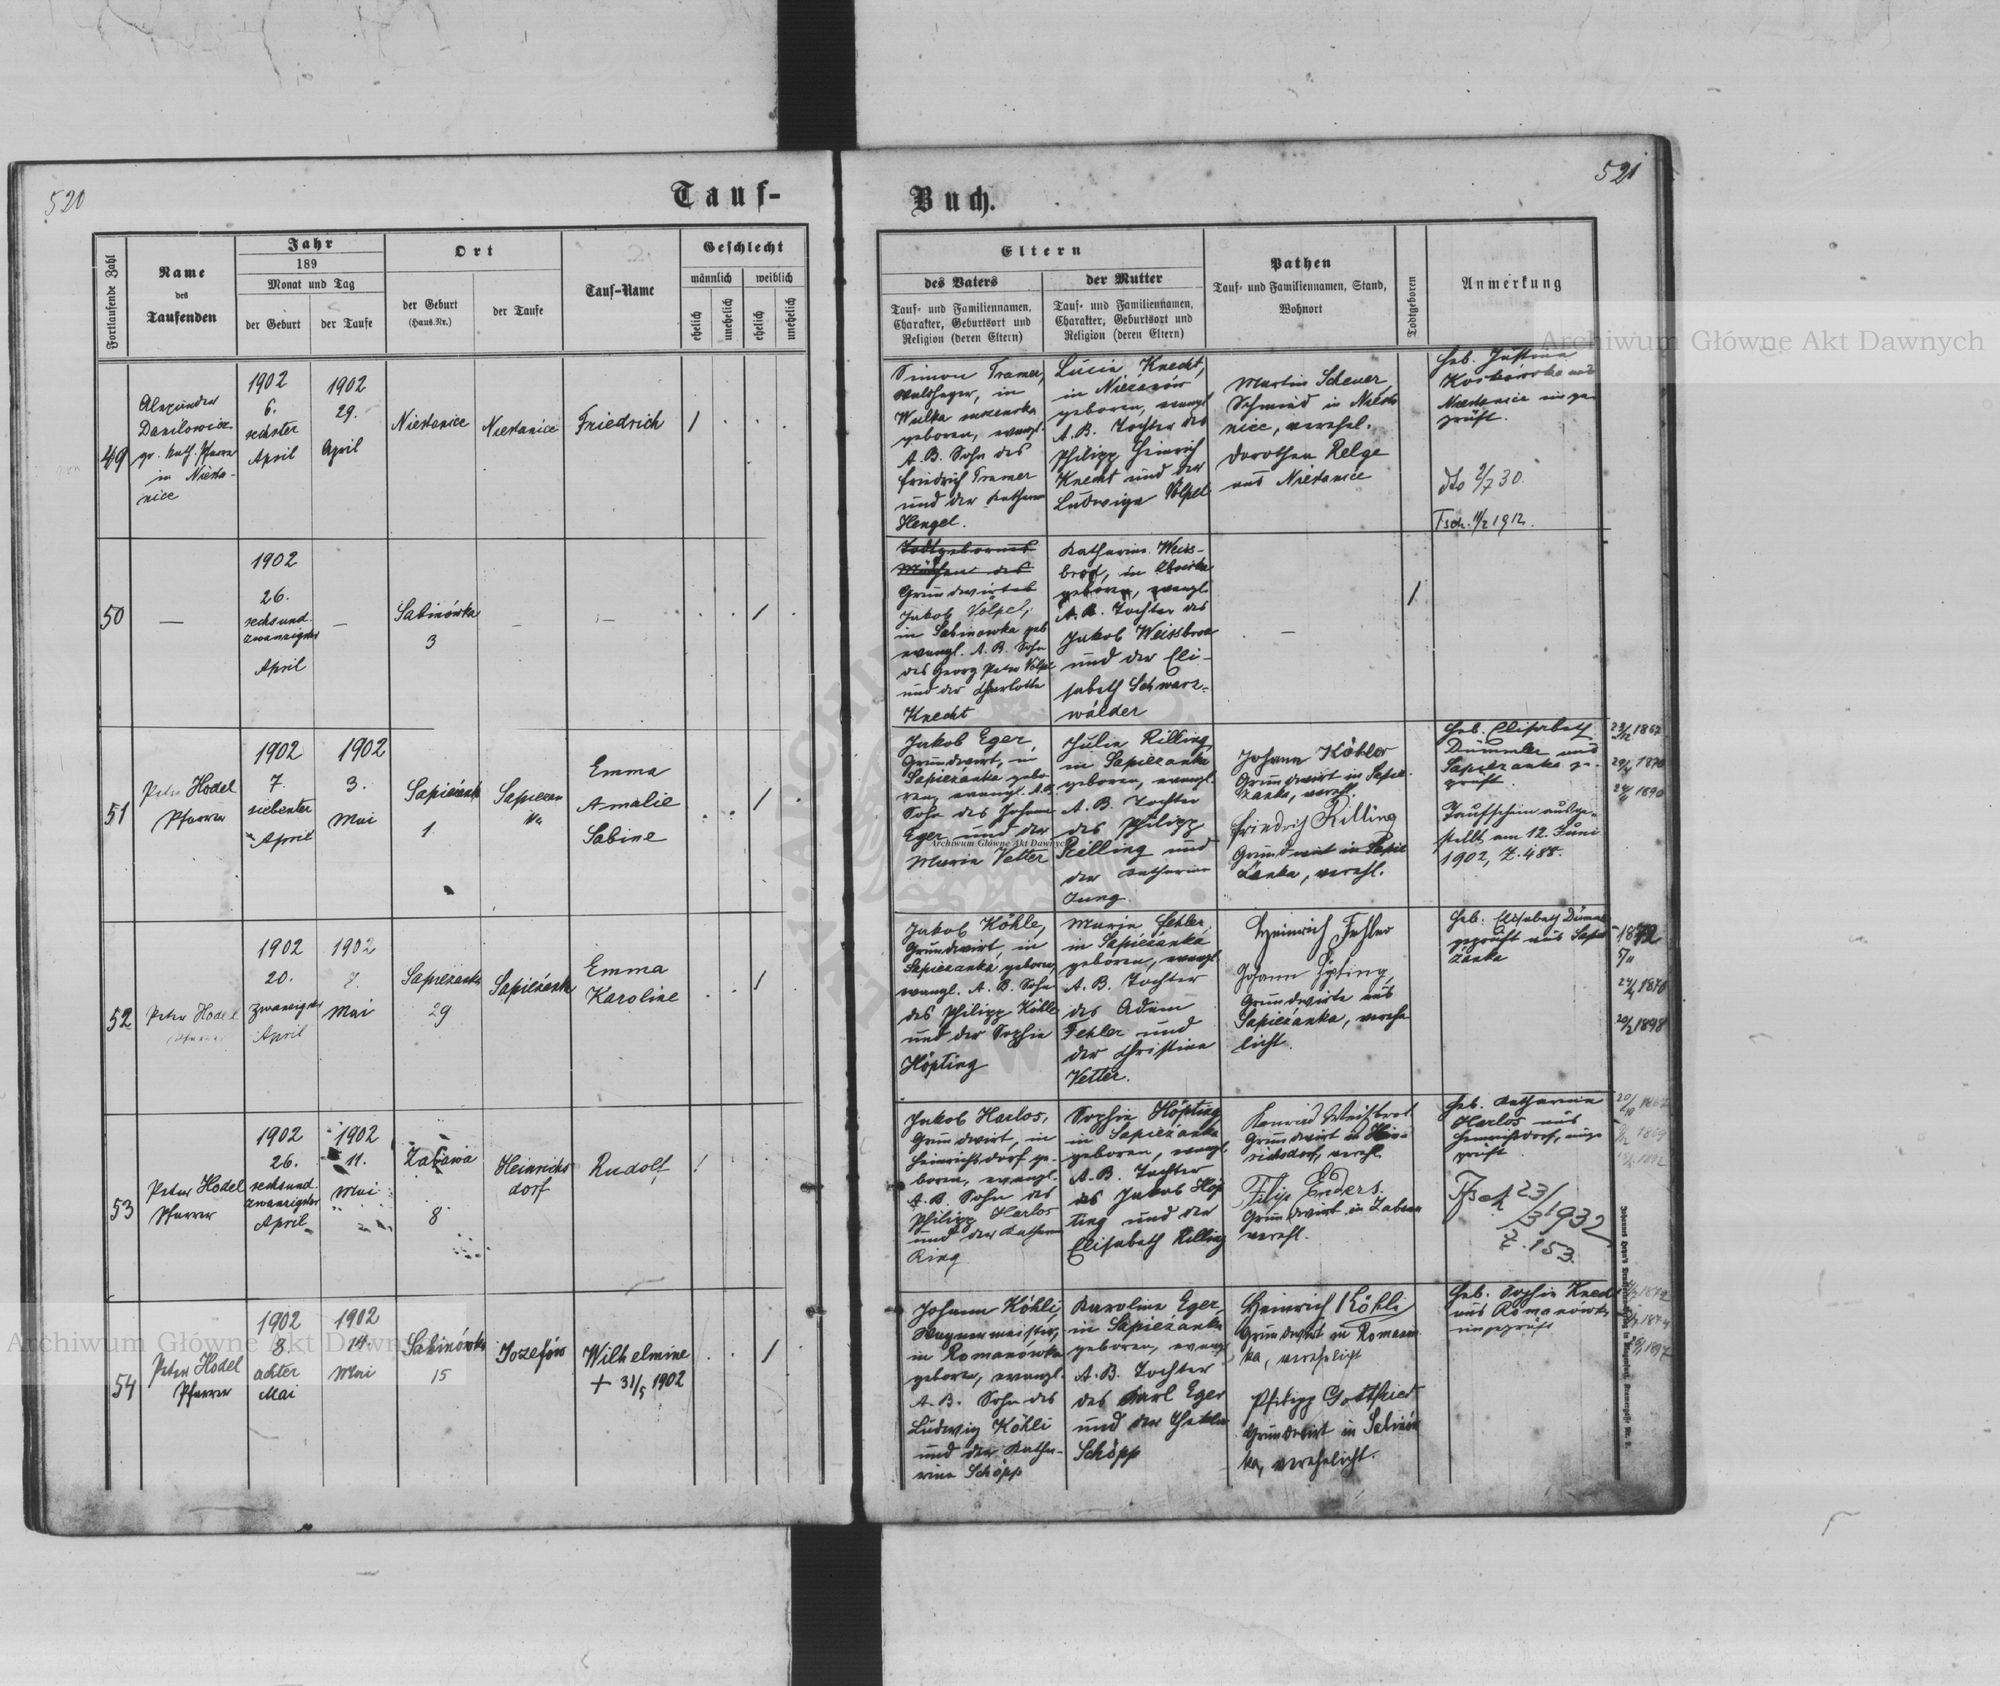 520
521
Tauf-
Buch.
Fortlaufende Zahl
Name
des
Taufenden
Jahr
189
Monat und Tag
der Geburt
der Taufe
Ort
der Geburt
(Haus.Nr.)
der Taufe
Tauf-Name
Geschlecht
männlich
weiblich
ehelich
unehelich
ehelich
unehelich
Eltern
des Vaters
der Mutter
Tauf- und Familiennamen,
Charakter, Geburtsort und
Religion (deren Eltern)
Tauf- und Familiennamen,
Charakter, Geburtsort und
Religion (deren Eltern)
Pathen
Tauf- und Familiennamen, Stand,
Wohnort
Todtgeboren
Anmerkung
Archiwum Główne Akt Dawnych
49
Alexander
Danilowicz
gr. kath. Pfarrer
in Niesta-
nice
1902
6.
sechster
April
1902
29.
April
Niestanice
Niestanice
Friedrich
1
Simon Tramer,
Waldheger, in
Wulka
geboren, evangl.
A. B. Sohn des
Friedrich Tramer
und der Katharina
Hengel.
Lucia Knecht,
in Nieznanów
geboren, evangl.
A. B. Tochter des
Philipp Heinrich
Knecht und der
Ludwiga Völpel
Martin Scheuer,
Schmied in Niesta
nice, verehel.
Dorothea Relge
aus Niestanice
Heb. Justina
aus
Niestanice unge
prüft.
dto 2/7 30.
Tsch. 11/2 1912.
50
—
1902
26.
sechsund-
zwanzigster
April
—
Sabinówka
3
—
—
1
Todtgebornes
Mädchen des
Grundwirtes
Jakob Völpel,
in Sabinowka geb.
evangl. A. B. Sohn
des Georg Peter Völpel
und der Charlotte
Knecht
Katharina Weiss-
brod, in
geboren, evangl.
A. B. Tochter des
Jakob Weissbrod
und der Eli-
sabeth Schwarz-
wälder
—
1
51
Peter Hodel
Pfarrer
1902
7.
siebenter
April
1902
3.
Mai
Sapieżanka
1
Sapieżan
ka
Emma
Amalie
Sabine
1
Jakob Eger,
Grundwirt, in
Sapieżanka gebo-
ren, evangl. A.B.
Sohn des Johann
Eger und der
Maria Vetter
Julia Rilling,
in Sapieżanka
geboren, evangl.
A. B. Tochter
des Philipp
Rilling und
der Katharina
Jung
Johann Köhler
Grundwirt in Sapie-
żanka, verehl.
Friedrich Rilling
Grundwirt in Sapie
żanka, verehl.
Heb. Elisabeth
Dümmler aus
Sapieżanka ge-
prüft.
Taufschein ausge-
stellt am 12. Juni
1902, Z. 488.
29/4 1870
24/11 1890
Archiwum Główne Akt Dawnych
52
Peter Hodel
Pfarrer
1902
20.
zwanzigster
April
1902
8.
Mai
Sapieżanka
29
Sapieżanka
Emma
Karoline
1
Jakob Köhle,
Grundwirt, in
Sapieżanka geboren,
evangl. A. B. Sohn
des Philipp Köhle
und der Sophie
Höpting
Maria Fehler,
in Sapieżanka
geboren, evangl.
A. B. Tochter
des Adam
Fehler und
der Christina
Vetter.
Heinrich Fehler
Johann Höpting,
Grundwirte aus
Sapieżanka, verehe
licht.
Heb. Elisabeth Dümm
geprüft aus Sapie
żanka
1872
20/2 1898
53
Peter Hodel
Pfarrer
1902
26.
sechsund-
zwanzigster
April
1902
11.
Mai
Zabawa
8
Heinrichs
dorf
Rudolf
1
Jakob Harlos,
Grundwirt, in
Heinrichsdorf ge-
boren, evangl.
A. B. Sohn des
Philipp Harlos
und der Katharina
Ring
Sophie Höpting
in Sapieżanka
geboren, evangl.
A. B. Tochter
des Jakob Höp
ting und der
Elisabeth Rilling
Konrad Weißbrod
Grundwirt in Hein-
richsdorf, verehl.
Filip Enders.
Grundwirt in Zabawa
verehl.
Heb. Katharina
Harlos aus
Heinrichsdorf, unge
prüft
Tsch 23/
3 1932
Z. 153.
54
Peter Hodel
Pfarrer
1902
8
achter
Mai
1902
14.
Mai
Sabinówka
15
Jozefów
Wilhelmine
+ 31/5 1902
1
Johann Köhli,
Wagnermeister,
in Romanówka
geboren, evangl.
A. B. Sohn des
Ludwig Köhli
und der Katha-
rina Schöpp
Karoline Eger,
in Sapieżanka
geboren, evangl
A. B. Tochter
des Karl Eger
und der
Schöpp
Heinrich Köhli
Grundwirt in Romanów
ka, verehelicht
Philipp Gottfried
Grundwirt in Sabinów
ka, verehelicht.
Heb. Sophie Knecht
aus Romanówka
ungeprüft
Archiwum Główne Akt Dawnych